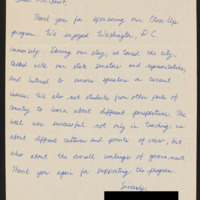 Thank you for sponsoring our Close-Up
program. We enjoyed Washington, D.C.
immensely. During our stay, we toured the city,
talked with our state senators and representatives,
and listened to various speakers on current
issues. We also met students from other parts of
country to learn about different perspectives. The
week was successful not only in teaching us
about different cultures and points of view, but
also about the overall workings of government.
Thank you again for supporting the program.
Sincerely,